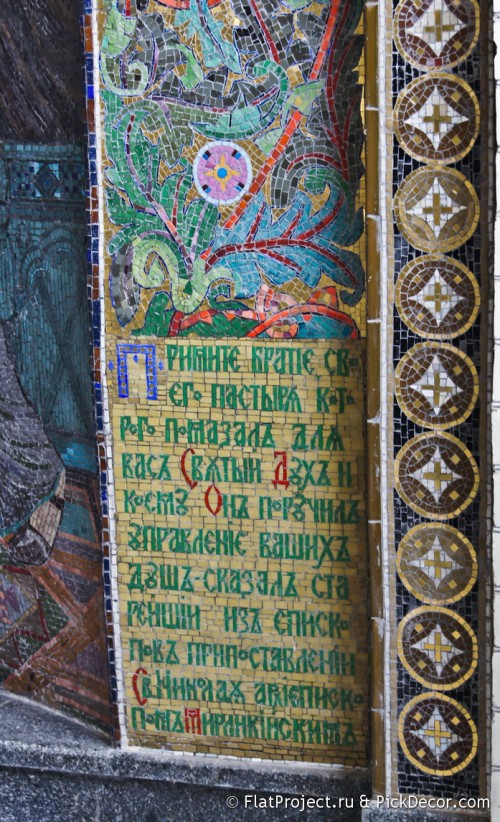 Примите братiе сво
его пастыря кото
рого помазалъ для
васъ Святыи Духъ и
коему Онъ поручилъ
управленiе вашихъ
душъ-сказалъ ста
реишiи изъ еписко
повъ при поставленiи
Св Николая архiеписко
помъ Мирликiйскимъ
© FlatProject.ru & PickDecor.com